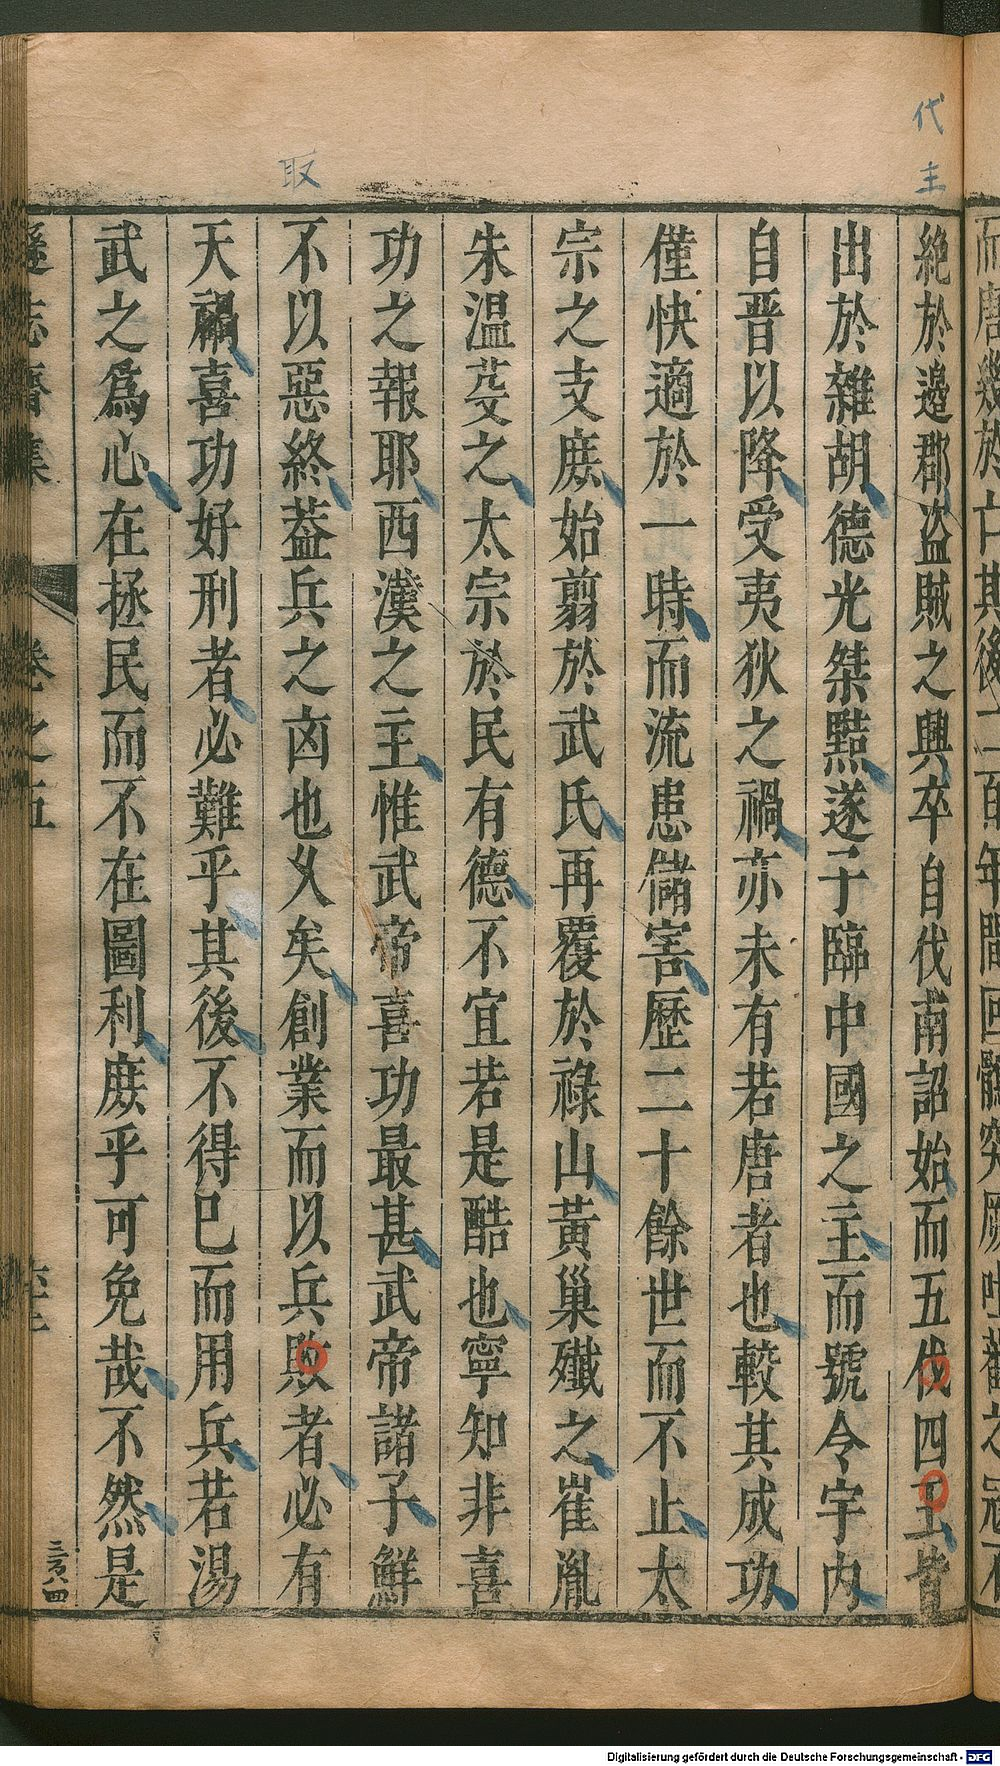 代
主
絶於邉郡盗賊之興卒自伐南詔始而五伐四王皆
出於雜胡德光桀黠遂子臨中國之主而號令宇内
自晋以降受夷狄之禍亦未有若唐者也較其成功
僅快適於一時而流患儲害歷二十餘世而不止太
宗之支庶始翦於武氏再覆於祿山黄巢殲之崔胤
朱温芟之太宗於民有德不宜若是酷也寧知非喜
功之報耶西漢之主惟武帝喜功最甚武帝諸子鮮
取
不以惡終葢兵之凶也乆矣創業而以兵敗者必有
天禍喜功好刑者必難乎其後不得已而用兵若湯
武之爲心在拯民而不在圖利庶乎可免哉不然是
遜志齋集 卷之五
三百八四
Digitalisierung gefördert durch die Deutsche Forschungsgemeinschaft - DFG